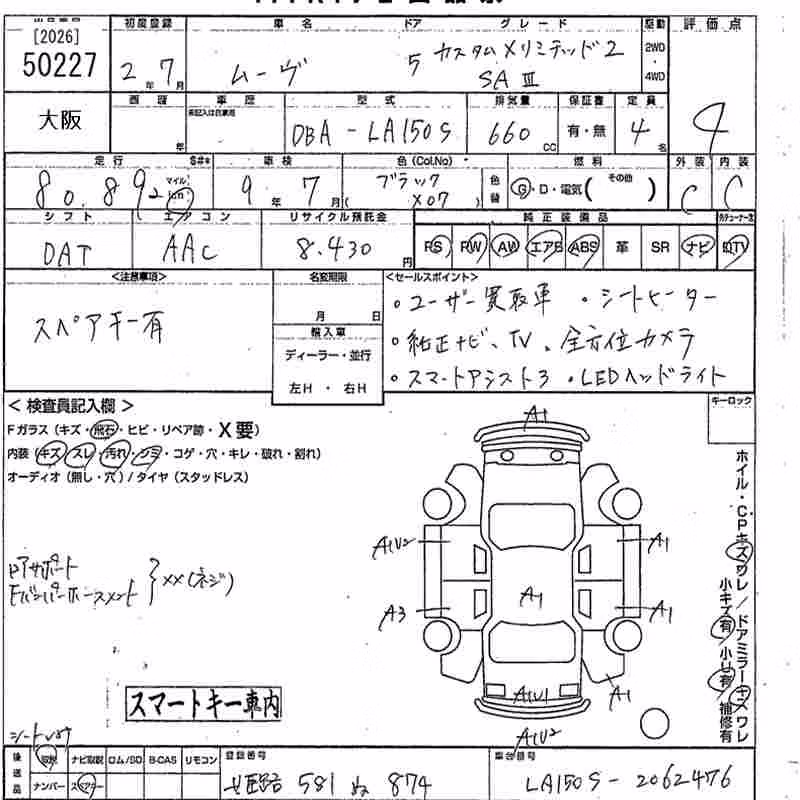 車名 ドア グレード 駆動 評価点
[2026] 初度登録
50227 2年 7月 ムーヴ 5 カスタムXリミテッド2 SAⅢ 2WD・4WD
大阪 車歴 型式 排気量 保証書 定員 4
年 DBA - LA150S 660 CC 有・無 4名
走行 S#* 車検 色(Col,No) 燃料 外装 内装
80.892 マイル km 9年 7月 ブラック X07 色替 G・D・電気( その他 ) C C
シフト エアコン リサイクル預託金 純正装備品
DAT AAC 8.430円 PS PW AW エアB ABS 革 SR ナビ TV
<注意事項> 名変期限 <セールスポイント>
スペアキー有 月 日 ・ユーザー買取車 ・シートヒーター
輸入車 ・純正ナビ、TV、全方位カメラ
ディーラー・並行 ・スマートアシスト3 ・LEDヘッドライト
左H・右H
キーロック
<検査員記入欄>
Fガラス(キズ・飛石・ヒビ・リペア跡・X要)
内装(キズ スレ・汚れ・シミ・コゲ・穴・キレ・破れ・割れ)
オーディオ(無し・穴)/タイヤ(スタッドレス)
A1
A1U2 A1
A3 A1 A1
A1U1 A1
A1U2
ホイル・CPキズワレ/ドアミラーキズワレ
小キズ有/小U有/補修有
Fバンパーホースメント }XX(ネジ)
スマートキー車内
後送品 取説 ナビ取説 ロム/SD B-CAS リモコン 登録番号 車台番号
ナンバー スペアキー 姫路 581 ぬ 874 LA150S-2062476